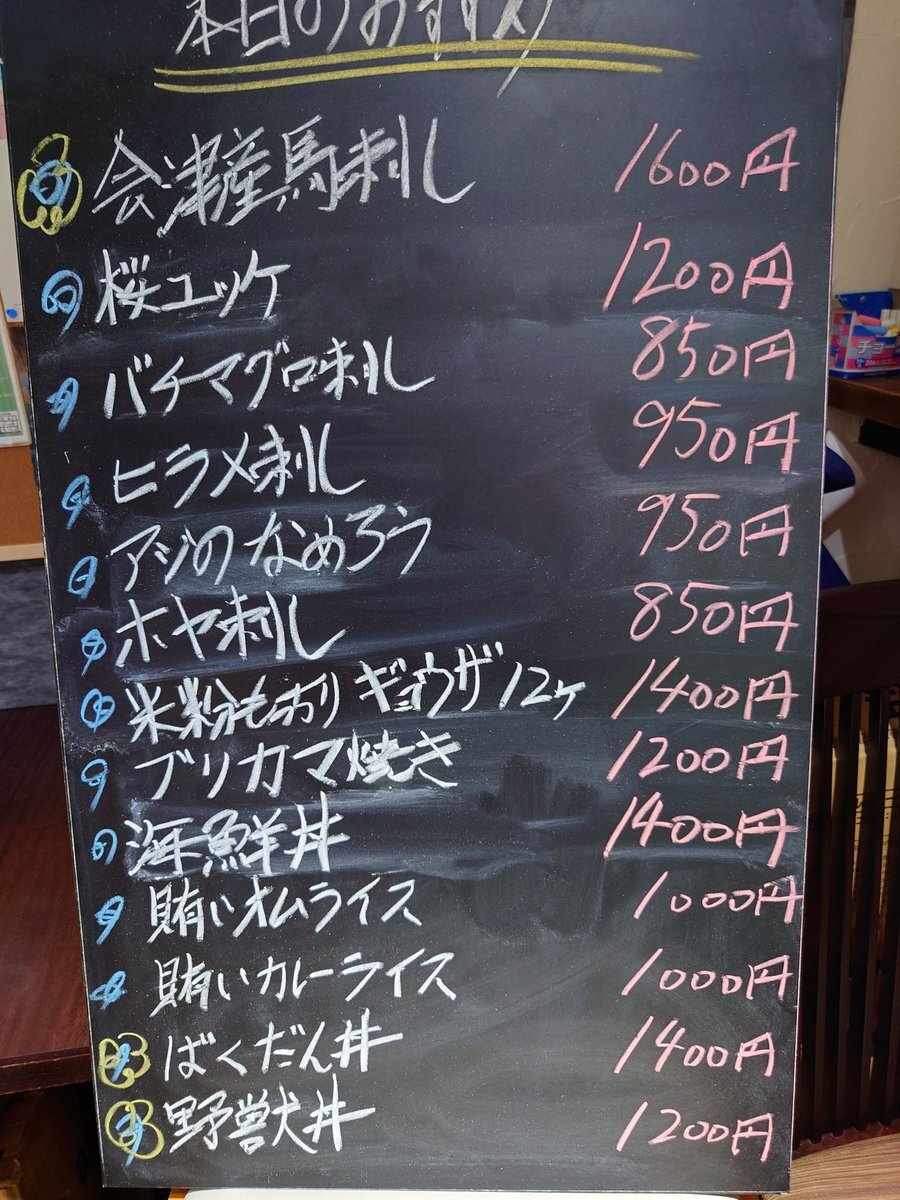 本日のおすすめ
会津産馬刺し 1600円
桜ユッケ 1200円
バチマグロ刺し 850円
ヒラメ刺し 950円
アジのなめろう 950円
ホヤ刺し 850円
米粉もっちり ギョウザ12ヶ 1400円
ブリカマ焼き 1200円
海鮮丼 1400円
賄いオムライス 1000円
賄いカレーライス 1000円
ばくだん丼 1400円
野獣丼 1200円
チョー